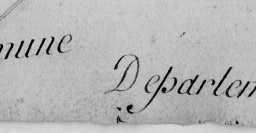 mune
Departem